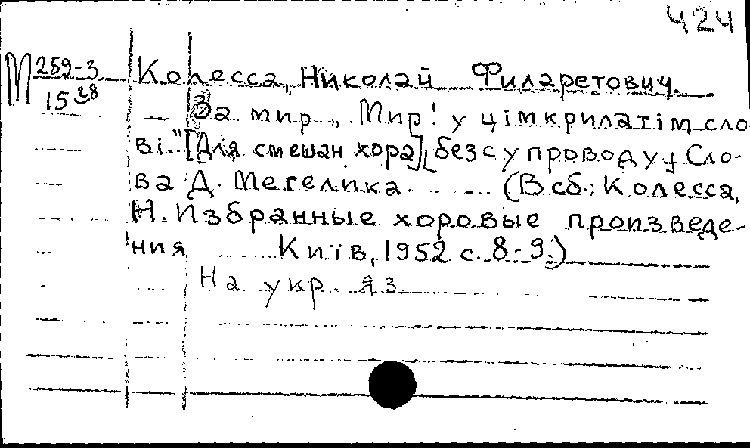 424
М 259-3 Колесса, Николай Филаретович
15
За мир „ Мир! у цім крилатім сло
ві." [Для смешан хора], без супроводу, Сло-
ва Д. Мегелика. (В сб.: Колесса,
Н. Избранные хоровые произведе-
ния Київ, 1952 с. 8-9.)
На укр. яз